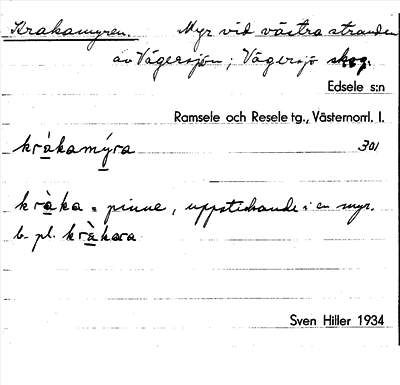 Krakamyren. Myr vid västra stranden
av Vägersjön; Vägersjö skog.
Edsele s:n
Ramsele och Resele tg., Västernorrl. l.
kràkamýra 301
kràka = pinne, uppstickande i en myr.
b. pl. kràkara
Sven Hiller 1934